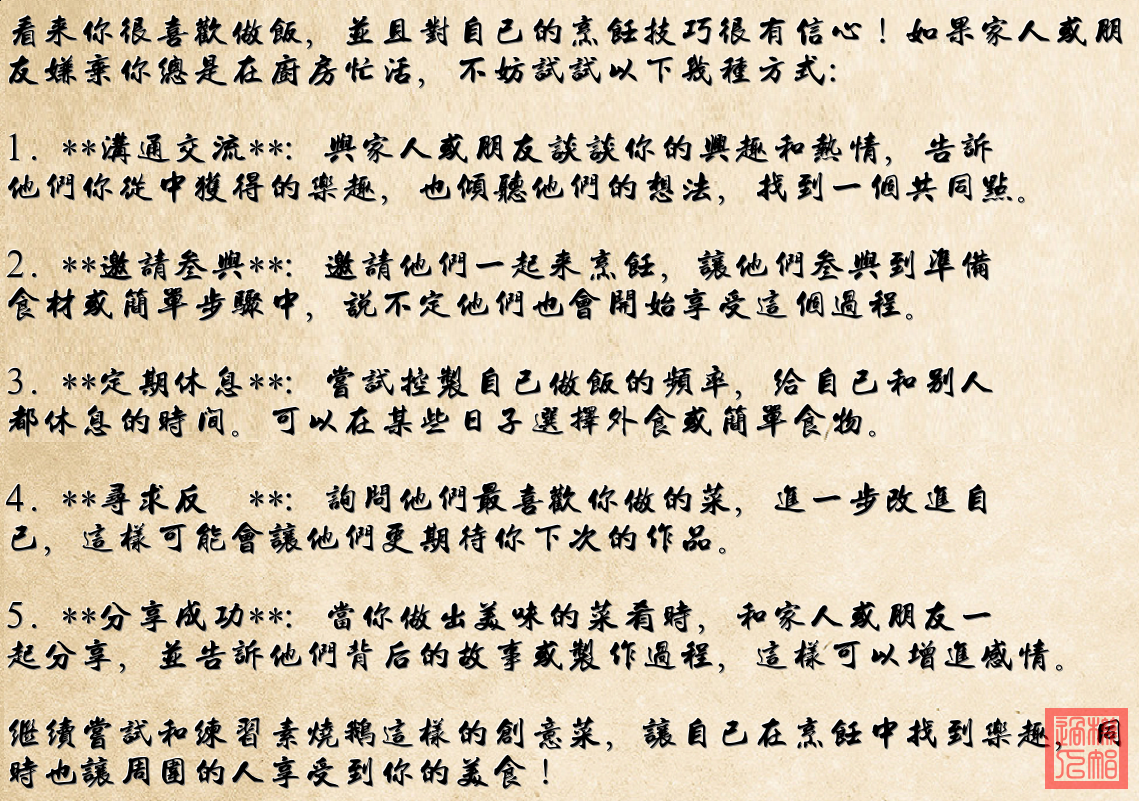 看来你很喜歡做飯，並且對自己的烹飪技巧很有信心！如果家人或朋
友嫌棄你總是在廚房忙活，不妨試試以下幾種方式：
1. **溝通交流**：與家人或朋友談談你的興趣和熱情，告訴
他們你從中獲得的樂趣，也傾聽他們的想法，找到一個共同點。
2. **邀請參與**：邀請他們一起来烹飪，讓他們參與到準備
食材或簡單步驟中，說不定他們也會開始享受這個過程。
3. **定期休息**：嘗試控製自己做飯的頻率，給自己和別人
都休息的時间。可以在某些日子選擇外食或簡單食物。
4. **尋求反　**：詢問他們最喜歡你做的菜，進一步改進自
己，這樣可能會讓他們更期待你下次的作品。
5. **分享成功**：當你做出美味的菜肴時，和家人或朋友一
起分享，並告訴他們背后的故事或製作過程，這樣可以增進感情。
继續嘗試和練習素燒鵝這樣的創意菜，讓自己在烹飪中找到樂趣，同
時也讓周圍的人享受到你的美食！